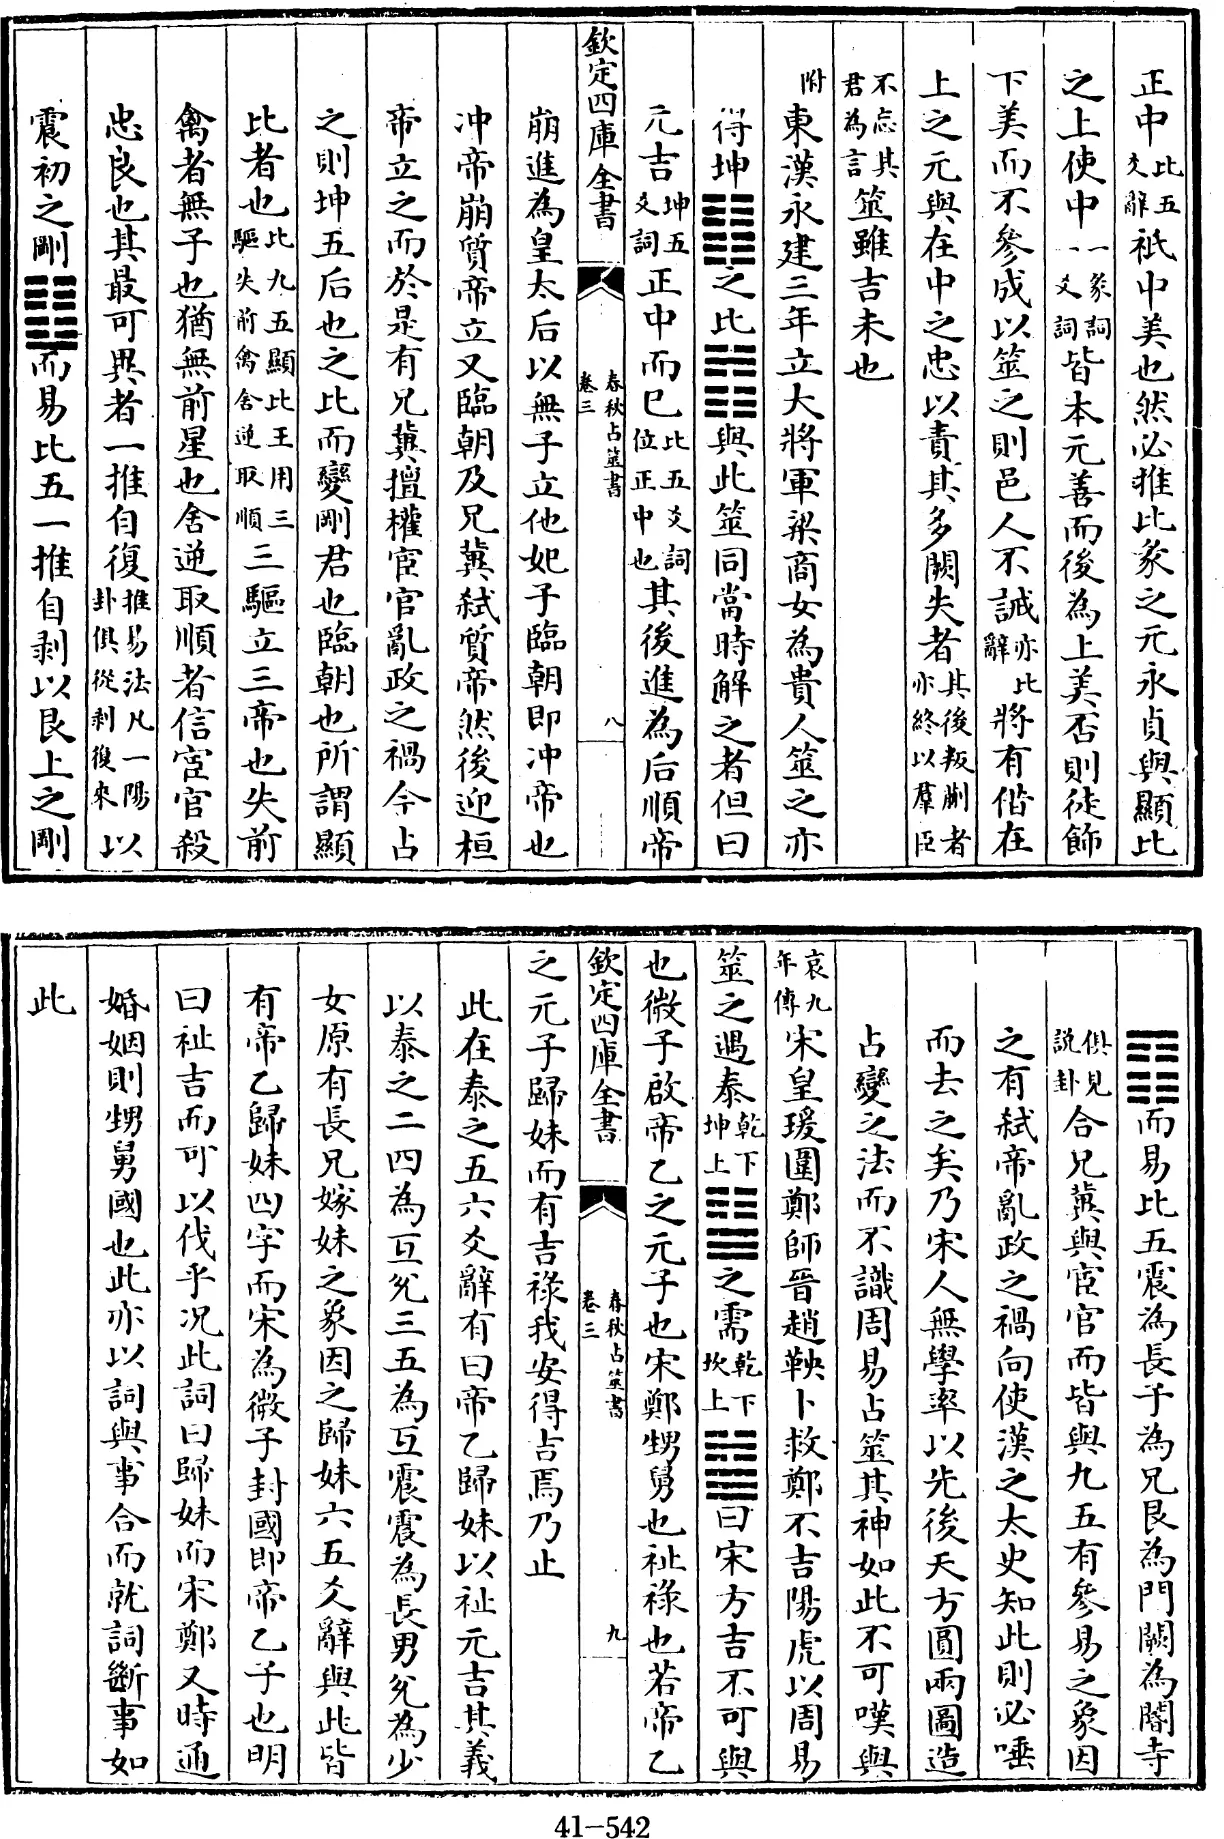 正中比五爻辭祇中美也然必推比彖之元永貞與顯比
之上使中一彖詞一爻詞皆本元善而後為上美否則徒飾
下美而不參成以筮之則邑人不誡亦比辭將有偕在
上之元與在中之忠以責其多闕失者其後叛蒯者亦終以羣臣
不忘其君為言筮雖吉未也
附東漢永建三年立大將軍梁商女為貴人筮之亦
得坤䷁之比䷇與此筮同當時解之者但曰
元吉坤五爻詞正中而已比五爻詞位正中也其後進為后順帝
欽定四庫全書 春秋占筮書卷三 八
崩進為皇太后以無子立他妃子臨朝即冲帝也
冲帝崩質帝立又臨朝及兄冀弒質帝然後迎桓
帝立之而於是有兄冀擅權宦官亂政之禍今占
之則坤五后也之比而變剛君也臨朝也所謂顯
比者也比九五顯比王用三驅失前禽舍逆取順三驅立三帝也失前
禽者無子也猶無前星也舍逆取順者信宦官殺
忠良也其最可異者一推自復推易法凡一陽卦俱從剝復來以
震初之剛䷗而易比五一推自剥以艮上之剛
䷖而易比五震為長子為兄艮為門闕為閽寺
俱見說卦合兄冀與宦官而皆與九五有參易之象因
之有弒帝亂政之禍向使漢之太史知此則必唾
而去之矣乃宋人無學率以先後天方圓兩圖造
占變之法而不識周易占筮其神如此不可嘆與
哀九年傳宋皇瑗圍鄭師晉趙鞅卜救鄭不吉陽虎以周易
筮之遇泰乾下坤上䷊之需乾下坎上䷄曰宋方吉不可與
也微子啟帝乙之元子也宋鄭甥舅也祉祿也若帝乙
欽定四庫全書 春秋占筮書卷三 九
之元子歸妹而有吉祿我安得吉焉乃止
此在泰之五六爻辭有曰帝乙歸妹以祉元吉其義
以泰之二四為互兌三五為互震震為長男兌為少
女原有長兄嫁妹之象因之歸妹六五爻辭與此皆
有帝乙歸妹四字而宋為微子封國即帝乙子也明
曰祉吉而可以伐乎況此詞曰歸妹而宋鄭又時通
婚姻則甥舅國也此亦以詞與事合而就詞斷事如
此
41-542